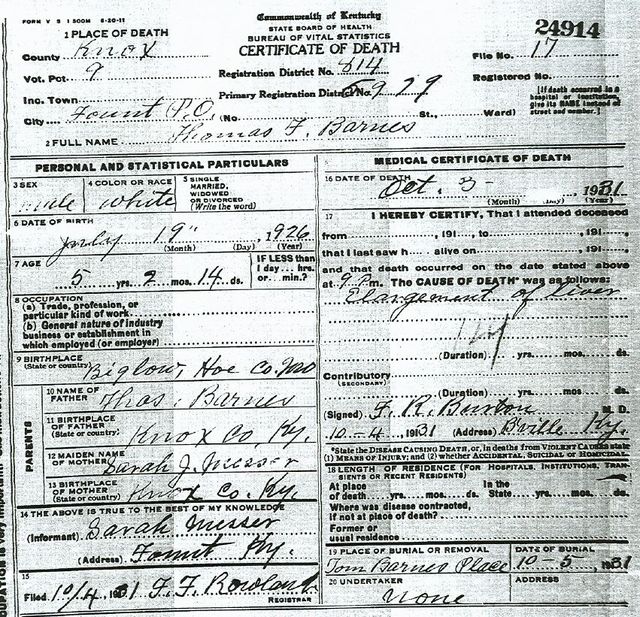 FORM V S 1 500M 5-20-11
Commonwealth of Kentucky
STATE BOARD OF HEALTH
BUREAU OF VITAL STATISTICS
CERTIFICATE OF DEATH
24914
1 PLACE OF DEATH
County Knox
Vot. Pct 9
Inc. Town
City Fount P.O. (No. St., Ward)
Registration District No. 814
Primary Registration District No. 5979
File No. 17
Registered No.
[If death occurred in a
hospital or institution,
give its NAME instead of
street and number.]
2 FULL NAME Thomas F. Barnes
PERSONAL AND STATISTICAL PARTICULARS
3 SEX male
4 COLOR OR RACE white
5 SINGLE
MARRIED,
WIDOWED
OR DIVORCED
(Write the word)
6 DATE OF BIRTH
19" , 1926
(Month) (Day) (Year)
7 AGE
5 yrs. 2 mos. 14 ds.
IF LESS than
1 day... hrs.
or... min.?
8 OCCUPATION
(a) Trade, profession, or
particular kind of work
(b) General nature of industry
business or establishment in
which employed (or employer)
9 BIRTHPLACE
(State or country) Biglow, Hoe Co. Mo
PARENTS
10 NAME OF
FATHER Thos. Barnes
11 BIRTHPLACE
OF FATHER
(State or country) Knox Co Ky.
12 MAIDEN NAME
OF MOTHER Sarah J. Messer
13 BIRTHPLACE
OF MOTHER
(State or country) Knox Co. Ky.
14 THE ABOVE IS TRUE TO THE BEST OF MY KNOWLEDGE
(Informant) Sarah Messer
(Address) Fount Ky.
15
Filed 10/4, 1931 F. F. Rowland
REGISTRAR
MEDICAL CERTIFICATE OF DEATH
16 DATE OF DEATH
Oct. 3 , 1931
(Month) (Day) (Year)
17 I HEREBY CERTIFY, That I attended deceased
from , 191 , to , 191
that I last saw h alive on , 191
and that death occurred on the date stated above
at 9 P.m. The CAUSE OF DEATH* was as follows:
Elargement of Liver
(Duration) yrs. mos. ds.
Contributory
(SECONDARY)
(Duration) yrs. mos. ds.
(Signed) F. R. Burton M. D.
10-4, 1931 (Address) Bville Ky.
*State the DISEASE CAUSING DEATH, or, in deaths from VIOLENT CAUSES state
(1) MEANS OF INJURY; and (2) whether ACCIDENTAL, SUICIDAL or HOMICIDAL.
18 LENGTH OF RESIDENCE (FOR HOSPITALS, INSTITUTIONS, TRANSIENTS OR RECENT RESIDENTS)
At place In the
of death yrs. mos. ds. State yrs. mos. ds.
Where was disease contracted,
if not at place of death?
Former or
usual residence
19 PLACE OF BURIAL OR REMOVAL
Tom Barnes Place
DATE OF BURIAL
10-5-, 1931
20 UNDERTAKER
none
ADDRESS